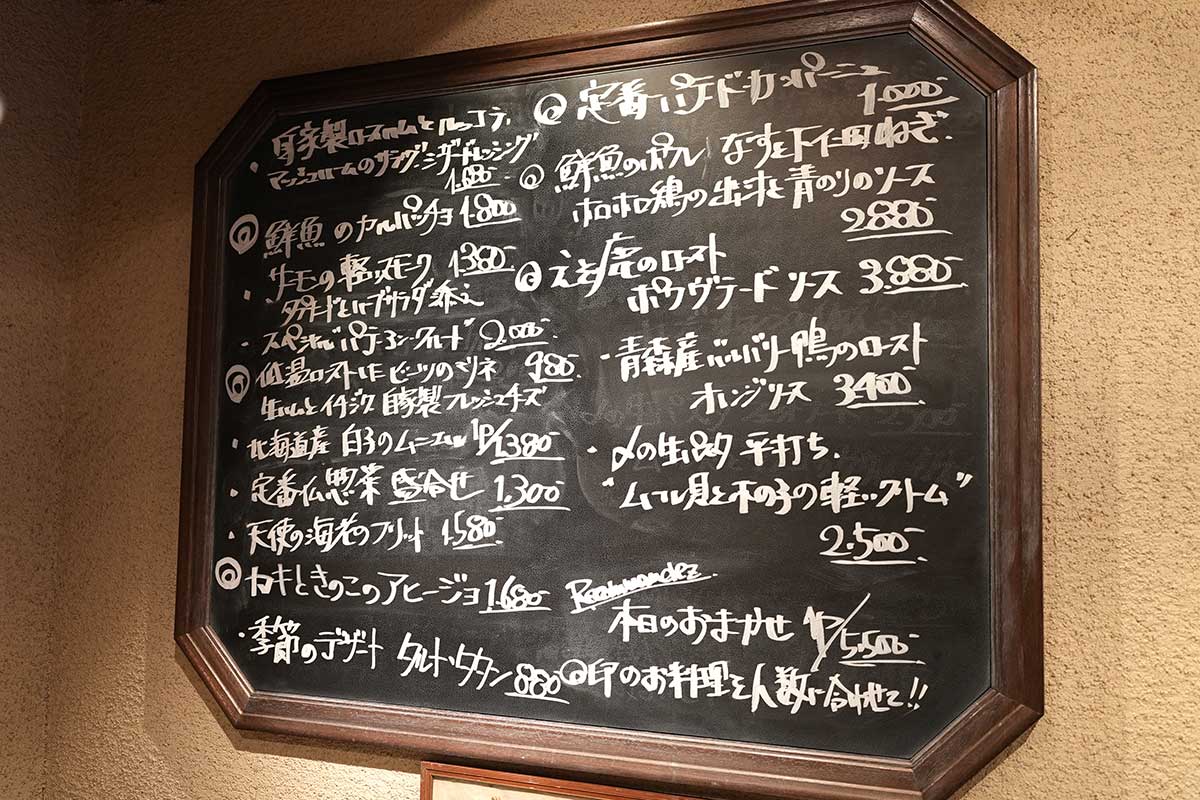 ・自家製ロースハムとルッコラ、
マッシュルームのサラダ シーザードレッシング
1.680-
◎鮮魚のカルパッチョ 1.800
・サーモンの軽いスモーク 1380-
タプナードとハーブサラダ添え
・スペシャルパテ アン クルート 2.000-
◎低温ローストしたビーツのマリネ 980-
生ハムとイチジク 自家製フレッシュチーズ
・北海道産 白子のムニエル 1P/1.380-
・定番仏惣菜 盛合せ 1.300-
・天使の海老のフリット 1.580-
◎カキときのこのアヒージョ 1.680-
・季節のデザート タルト・タタン 880-
◎定番 パテ・ド・カンパーニュ
1.000-
◎鮮魚のポワレ なすと下仁田ねぎ、
ホロホロ鶏の出来と青のりのソース
2.880-
◎えぞ鹿のロースト
ポワヴラードソース 3.880-
・青森産バルバリー鴨のロースト
オレンジソース 3.400-
・〆の生パスタ 平打ち、
"ムール貝と木の子の軽いクリーム"
2.500-
Recommandez
本日のおまかせ 1P/5.500-
◎印のお料理を人数に合わせて!!